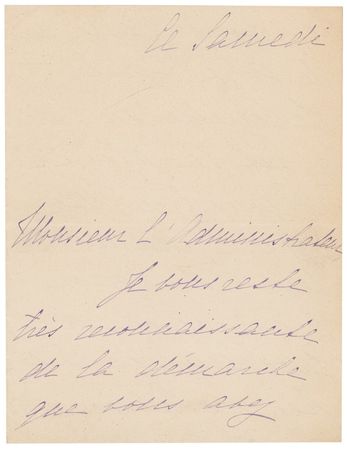 Ce Samedi
Monsieur l'Administrateur
Je vous reste
très reconnaissante
de la démarche
que vous avez